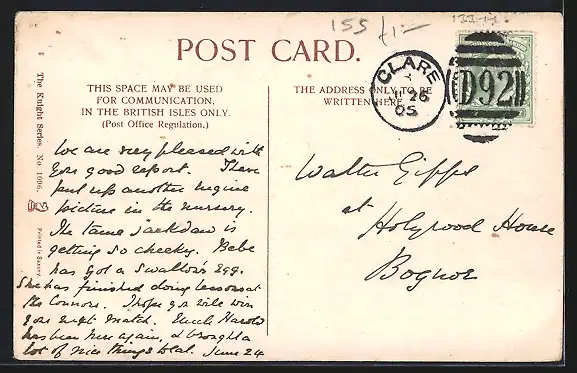 155 £1-
POST CARD.
THIS SPACE MAY BE USED
FOR COMMUNICATION,
IN THE BRITISH ISLES ONLY.
(Post Office Regulation.)
THE ADDRESS ONLY TO BE
WRITTEN HERE.
CLARE
26
05
D92
The Knight Series. No. 1096.
Printed in Saxony.
We are very pleased with
your good report. I have
put up another engine
picture in the nursery.
The tame jackdaw is
getting so cheeky. Bebe
has got a swallow's egg.
She has finished doing lessons at
the Connors. I hope you will win
your next match. Uncle Harold
has been here again, & brought a
lot of nice things to eat. June 24
Walter Gipps
at Holyrood House
Bognor